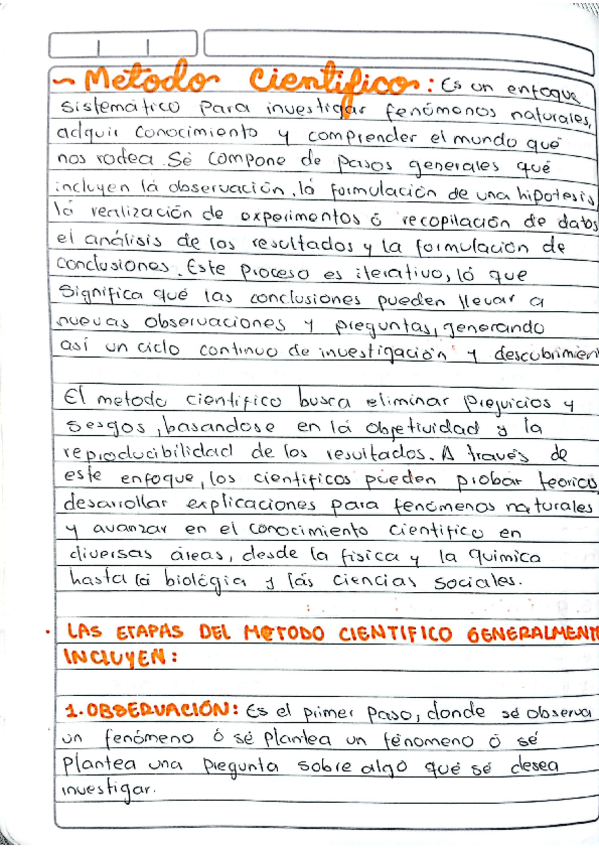 ~ Metodo cientifico: Es un enfoque
sistemático para investigar fenómenos naturales,
adquir conocimiento y comprender el mundo qué
nos rodea. Sé compone de pasos generales qué
incluyen lá observación, lá formulación de una hipotesis,
lá realización de experimentos ó recopilación de datos
el análisis de los resultados y la formulación de
conclusiones. Este proceso es iterativo, ló que
significa qué las conclusiones pueden llevar a
nuevas observaciones y preguntas, generando
así un ciclo continuo de investigación y descubrimien

El metodo cientifico busca eliminar prejuicios y
sesgos, basandose en lá objetividad y la
reproducibilidad de los resultados. A través de
este enfoque, los cientificos pueden probar teorias,
desarrollar explicaciones para fenómenos naturales
y avanzar en el conocimiento cientifico en
diversas áreas, desde la fisica y la quimica
hasta lá biológia y lás ciencias sociales.

· LAS ETAPAS DEL METODO CIENTIFICO GENERALMENT
INCLUYEN:

1. OBSERVACIÓN: Es el primer paso, donde sé observa
un fenómeno ó sé plantea un fenomeno ó sé
plantea una pregunta sobre algo qué sé desea
investigar.